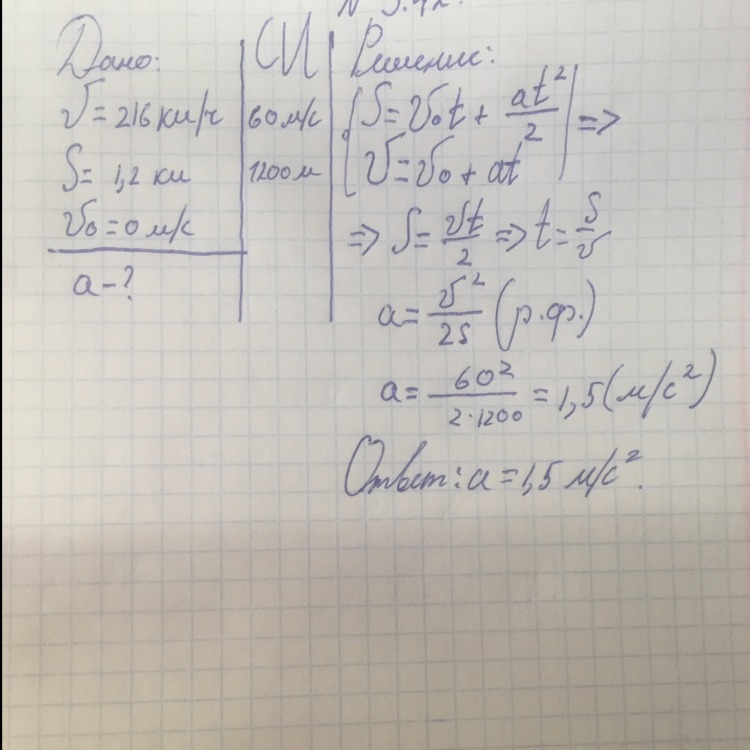 Дано:
V = 216 км/ч
S = 1,2 км
V₀ = 0 м/с
a - ?
СИ
60 м/с
1200 м
Решение:
{ S = V₀t + at²/2 | =>
{ V = V₀ + at |
=> S = Vt/2 => t = S/V
a = V²/2S (р.ф.)
a = 60²/2·1200 = 1,5 (м/с²)
Ответ: a = 1,5 м/с².